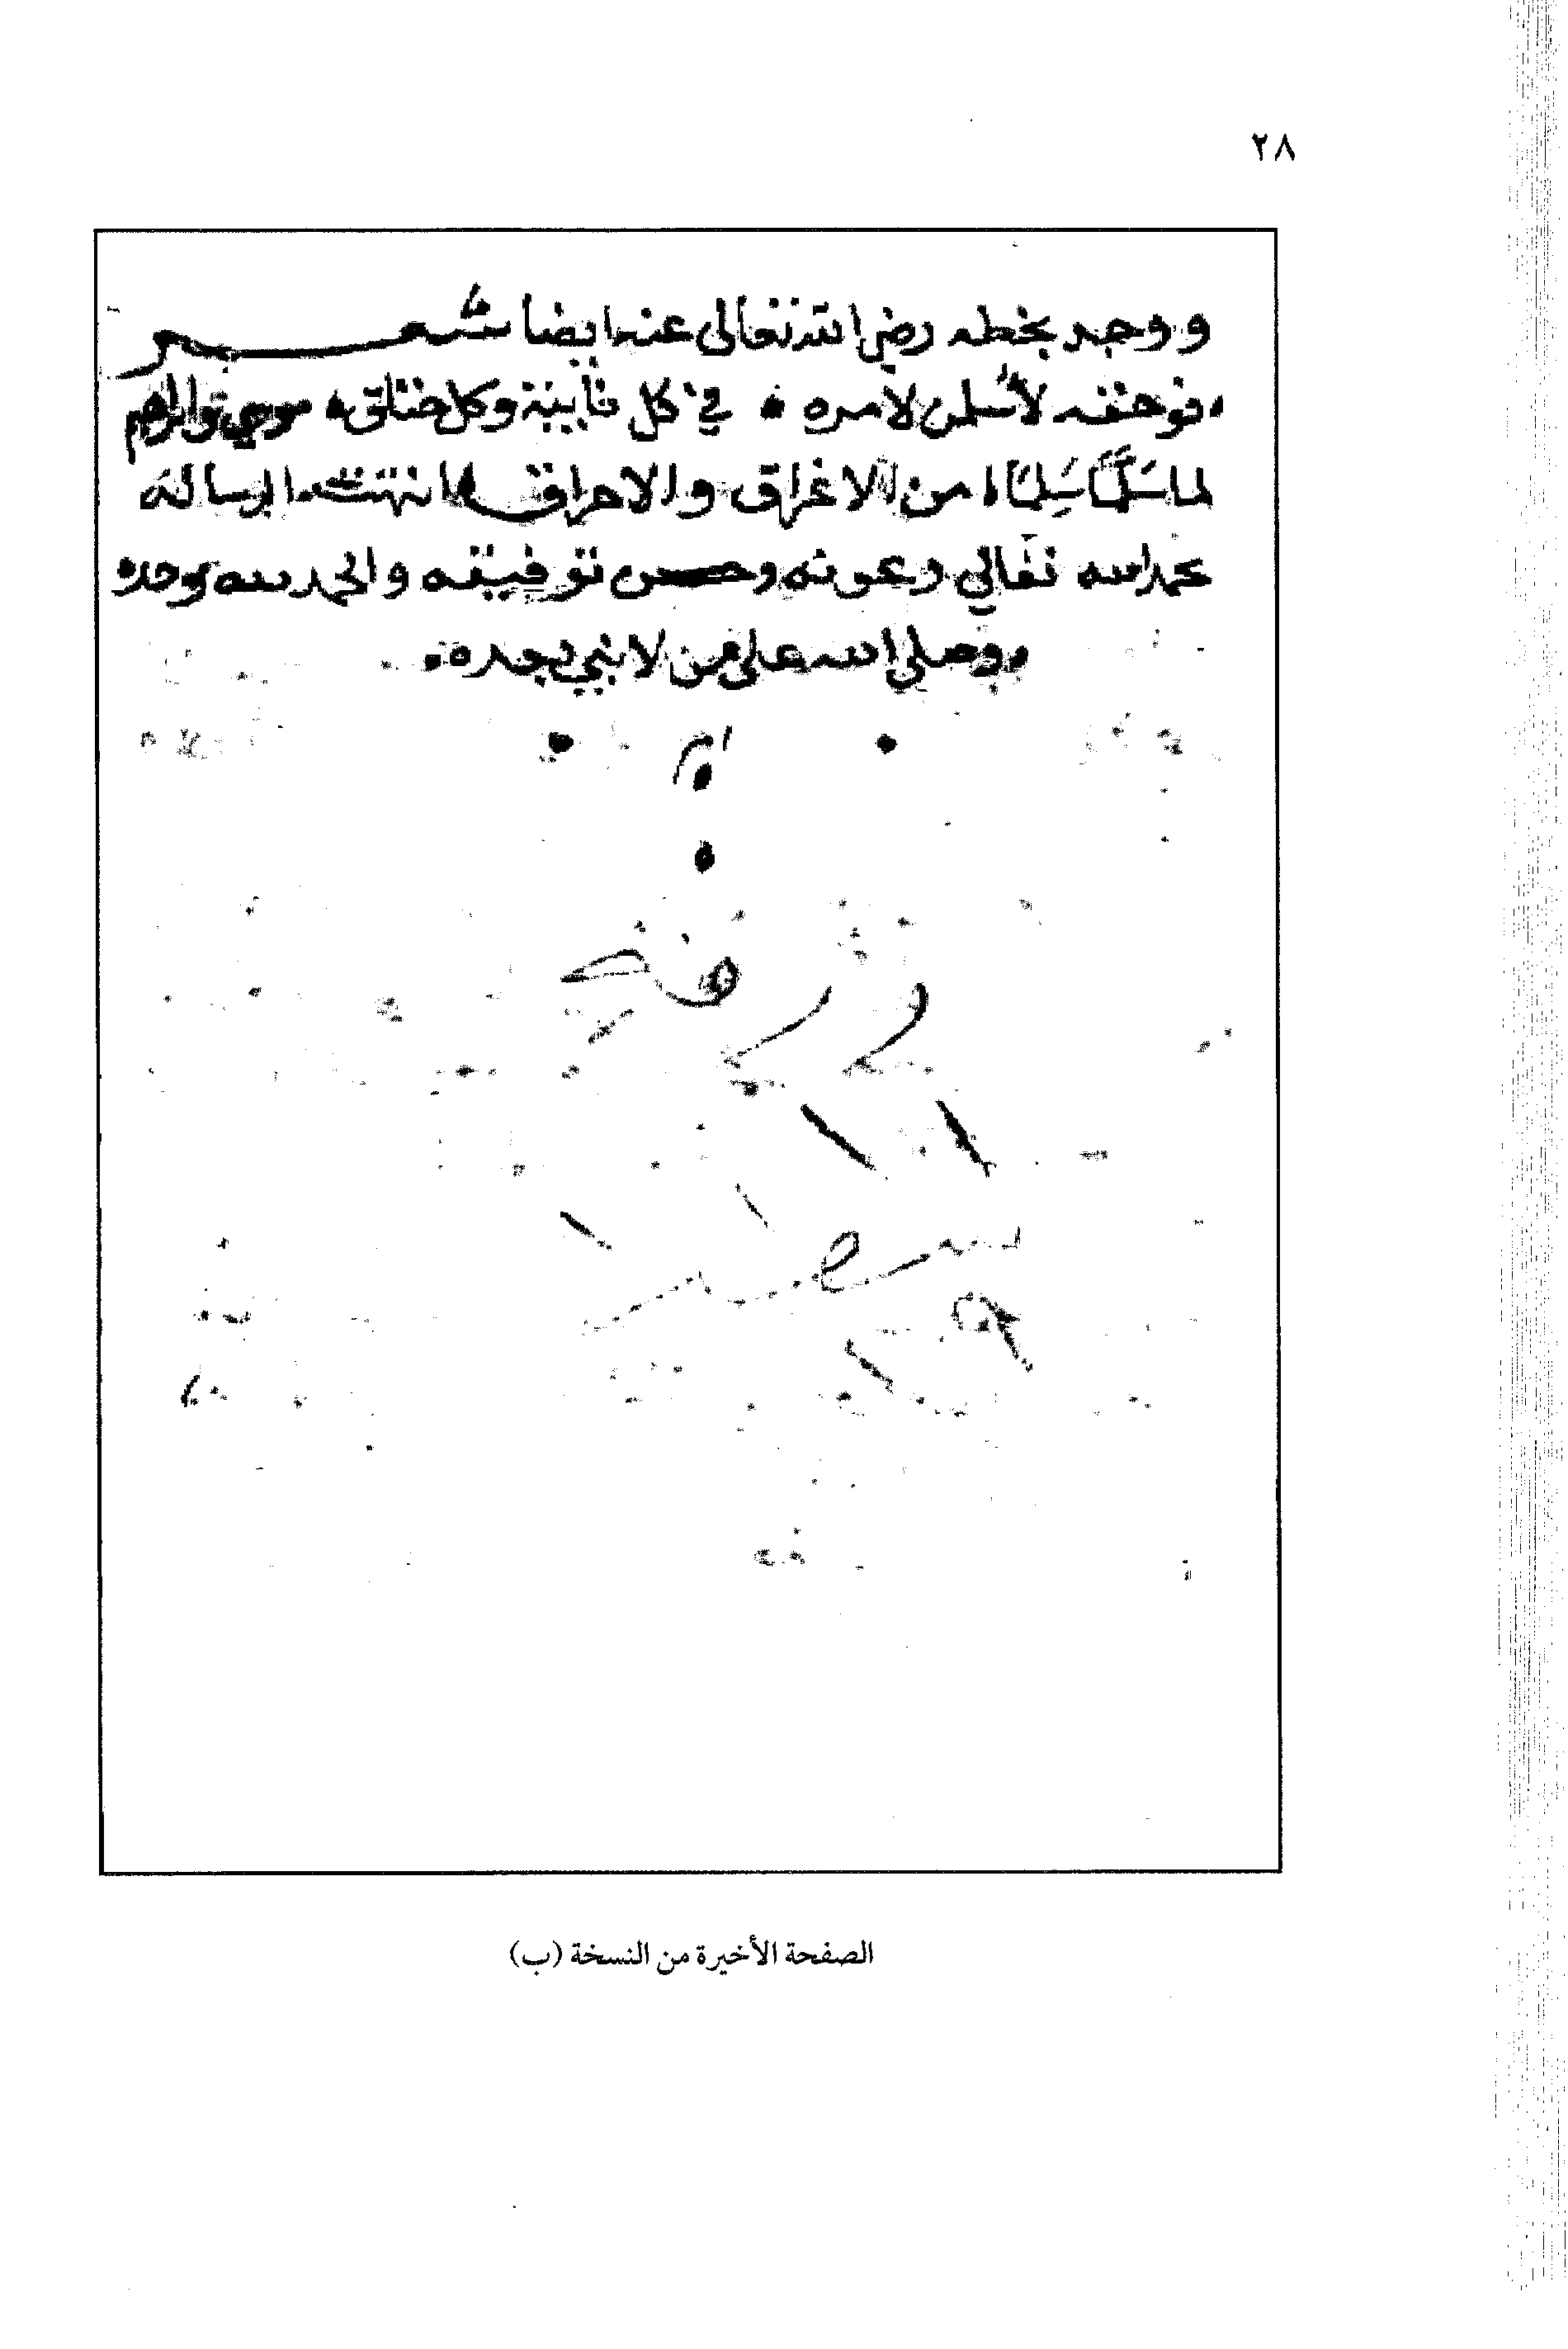 ٢٨
ووجد بخطه رضي الله تعالى عنه ايضا شعر
فوحقه لأسلمن لامره في كل نايبة وكل خناق موسى وابراهيم
لما سلّما سَلِمَا من الاغراق والاحراق انتهت الرسالة
بحمد الله تعالي وعونه وحسن توفيقه والحمد لله وحده
وصلي الله علي من لا نبي بعده
الصفحة الأخيرة من النسخة (ب)